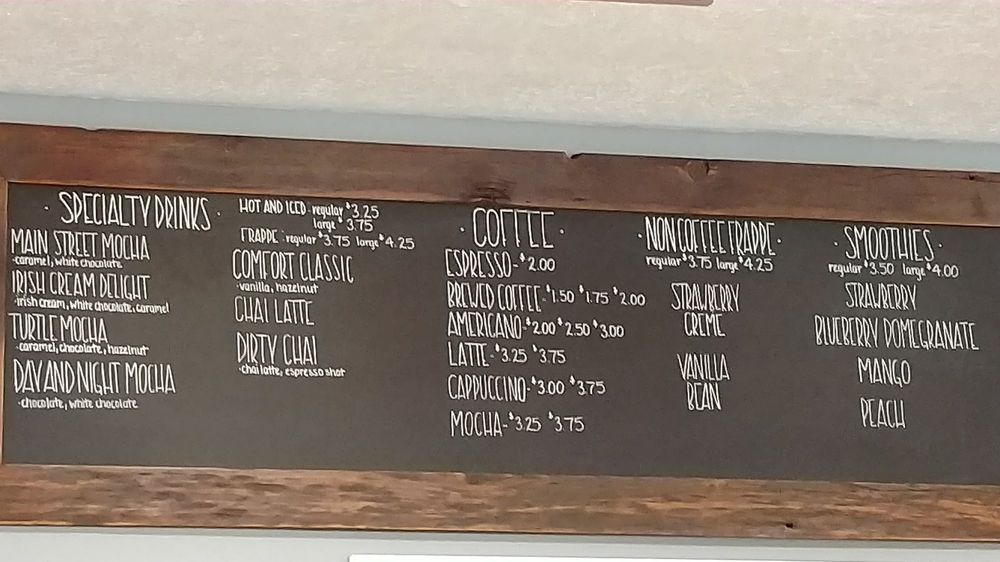 · SPECIALTY DRINKS ·
MAIN STREET MOCHA
·caramel, white chocolate
IRISH CREAM DELIGHT
·irish cream, white chocolate, caramel
TURTLE MOCHA
·caramel, chocolate, hazelnut
DAY AND NIGHT MOCHA
·chocolate, white chocolate
HOT AND ICED: regular $3.25
large $3.75
FRAPPE: regular $3.75 large $4.25
COMFORT CLASSIC
·vanilla, hazelnut
CHAI LATTE
DIRTY CHAI
·chai latte, espresso shot
· COFFEE ·
ESPRESSO-$2.00
BREWED COFFEE-$1.50 $1.75 $2.00
AMERICANO-$2.00 $2.50 $3.00
LATTE-$3.25 $3.75
CAPPUCCINO-$3.00 $3.75
MOCHA-$3.25 $3.75
· NON COFFEE FRAPPE ·
regular $3.75 large $4.25
STRAWBERRY
CREME
VANILLA
BEAN
· SMOOTHIES ·
regular $3.50 large $4.00
STRAWBERRY
BLUEBERRY POMEGRANATE
MANGO
PEACH